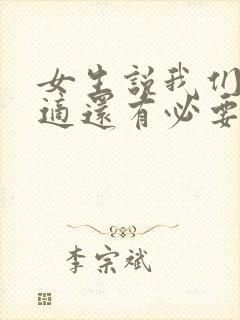 女生説我们
適還有必要
李宗斌